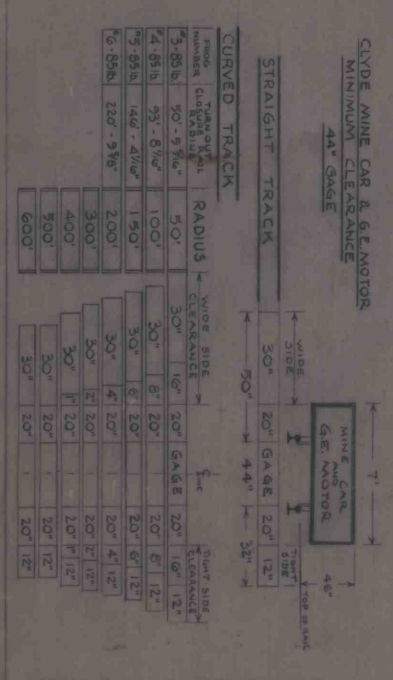 CLYDE MINE CAR & G.E. MOTOR
MINIMUM CLEARANCE
44" GAGE
7'
MINE CAR
AND
G.E. MOTOR
46"
TOP OF RAIL
WIDE
SIDE
TIGHT
SIDE
STRAIGHT TRACK 30" 20" GAGE 20" 12"
50" 44" 32"
CURVED TRACK
FROG NUMBER TURNOUT CLOSURE RAIL RADIUS RADIUS WIDE SIDE CLEARANCE LINE TIGHT SIDE CLEARANCE
#3-85lb. 50'-5 9/16" 50' 30" 16" 20" GAGE 20" 16" 12"
#4-85lb. 93'-8 1/16" 100' 30" 8" 20" 20" 8" 12"
#5-85lb. 146'-4 1/16" 150' 30" 6" 20" 20" 6" 12"
#6-85lb. 220'-9 9/16" 200' 30" 4" 20" 20" 4" 12"
300' 30" 2" 20" 20" 2" 12"
400' 30" 1" 20" 20" 1" 12"
500' 30" 20" 20" 12"
600' 30" 20" 20" 12"